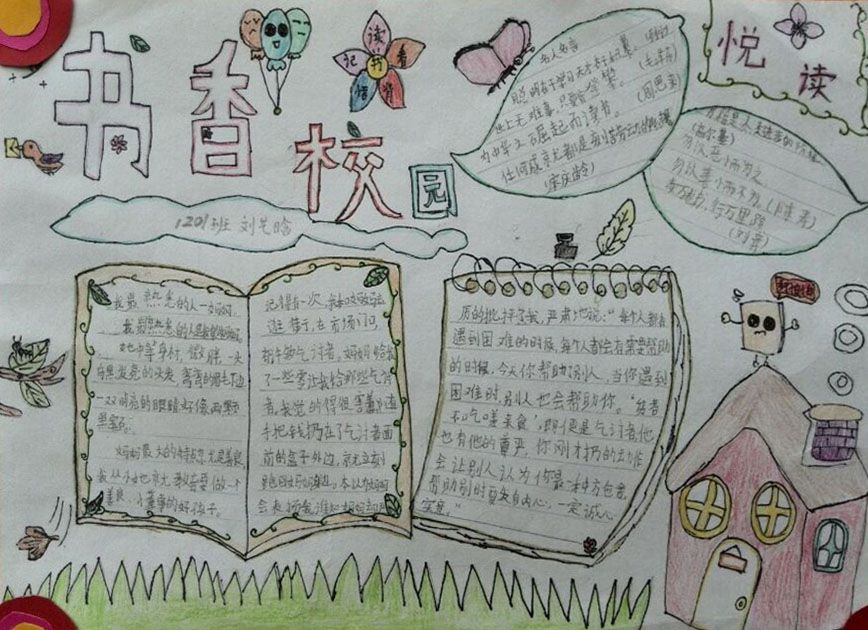 书香
校园
悦
读
读
书
记
1201班
名人名言
聪明在于学习,天才在于积累。
世上无难事,只要肯学
为中华之崛起而读书。
任何成就都是刻苦劳动的
(宋庆龄)
(高尔基)
勿以恶小而为之
勿以善小而不为。
行万里路
(刘彝)
我最熟悉的人—妈妈
我最熟悉的人是妈妈
她中等身材,微胖,一头
乌黑发亮的头发,弯弯的眉毛下边
一双明亮的眼睛好像两颗
黑宝石。
妈妈最大的特点尤是善良,
我从小她就教育要做一个
善良、小董事的好孩子。
记得有一次,我和妈妈去
逛街,在市场门口,
妈妈给我
了一些零让我给那些乞讨
者,我觉的得很害羞,
手把钱扔在了乞讨者面
前的盒子外边,就立刻
跑回妈妈身边。本以为妈妈
会表扬我,谁知妈妈却严
厉的批评了我,严肃地说:“每个人都会
遇到困难的时候,每个人都会有需要帮助
的时候,今天你帮助别人,当你遇到
困难时,别人也会帮助你。“贫者
不吃嗟来食”,即便是乞讨者,他
也有他的尊严,你刚才扔的动作
会让别人认为你是一种方包舍,
帮助别时莫失自内心,一定诚心
实意。”